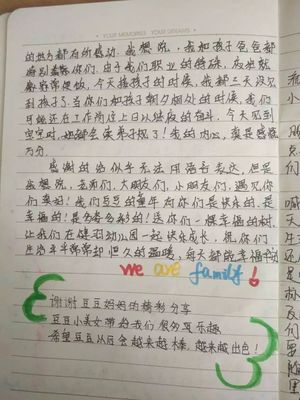 YOUR MEMORIES YOUR DREAMS
的地方都有所感动。我想说，我和孩子爸爸都
特别感谢你们。由于我们职业的特殊，夜班就
家常便饭，今天接孩子的时候，我都三天没见
到孩子了。当你们和孩子朝夕相处的时候，我们
可能还在工作岗位上日以继夜的奋斗，今天见到
宝宝时，她都会亲弟子规了！我的内心，真是感慨
万分。
感谢的话似乎无法用语言表达，但是
我想说，老师们，大朋友们，小朋友们，遇见你
们真好！我们豆豆的童年有你们是快乐的，是
幸福的！是多姿多彩的！送你们一棵幸福的树，
让我们在健羽幼儿园一起快乐成长，祝你们
生活平平常常却恒久的温暖，每天都能幸福开心
we are family！
谢谢豆豆妈妈的精彩分享
豆豆小美女带给我们很多可乐趣
希望豆豆以后会越来越棒，越来越出色！